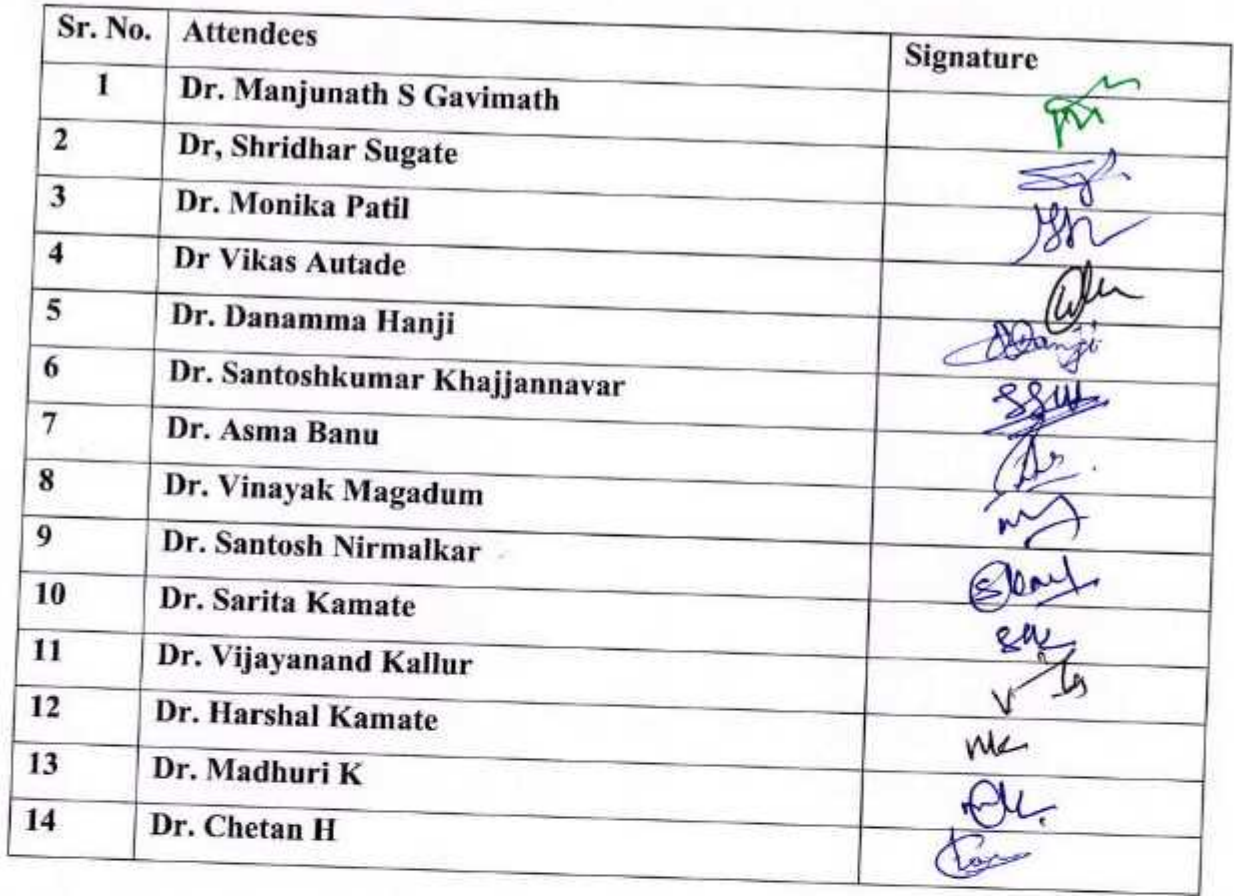 Sr. No. Attendees Signature
1 Dr. Manjunath S Gavimath
2 Dr, Shridhar Sugate
3 Dr. Monika Patil
4 Dr Vikas Autade
5 Dr. Danamma Hanji
6 Dr. Santoshkumar Khajjannavar
7 Dr. Asma Banu
8 Dr. Vinayak Magadum
9 Dr. Santosh Nirmalkar
10 Dr. Sarita Kamate
11 Dr. Vijayanand Kallur
12 Dr. Harshal Kamate
13 Dr. Madhuri K
14 Dr. Chetan H